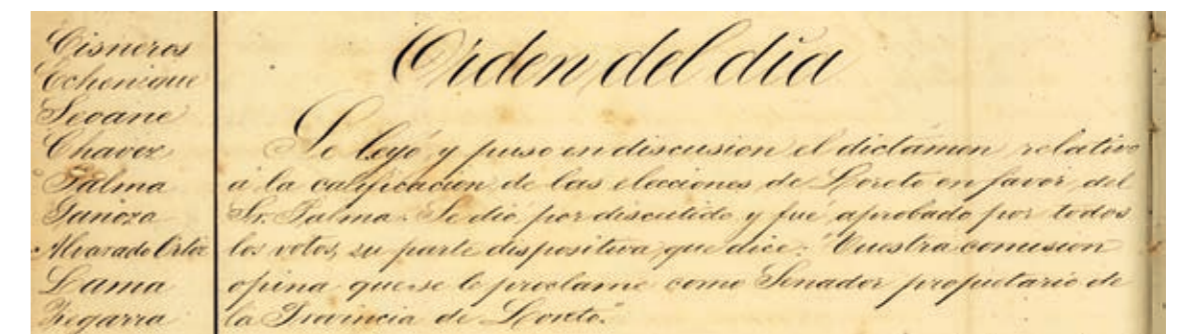 Cisneros
Echenique
Seoane
Chavez
Palma
Ganoza
Alvarado Ortiz
Lama
Zegarra
Orden del dia
Se leyó y puso en discusion el dictámen relativo
á la calificacion de las elecciones de Loreto en favor del
Sr. Palma. Se dió por discutido y fué aprobado por todos
los votos, su parte dispositiva que dice: "Vuestra comision
opina que se le proclame como Senador propietario de
la Provincia de Loreto."